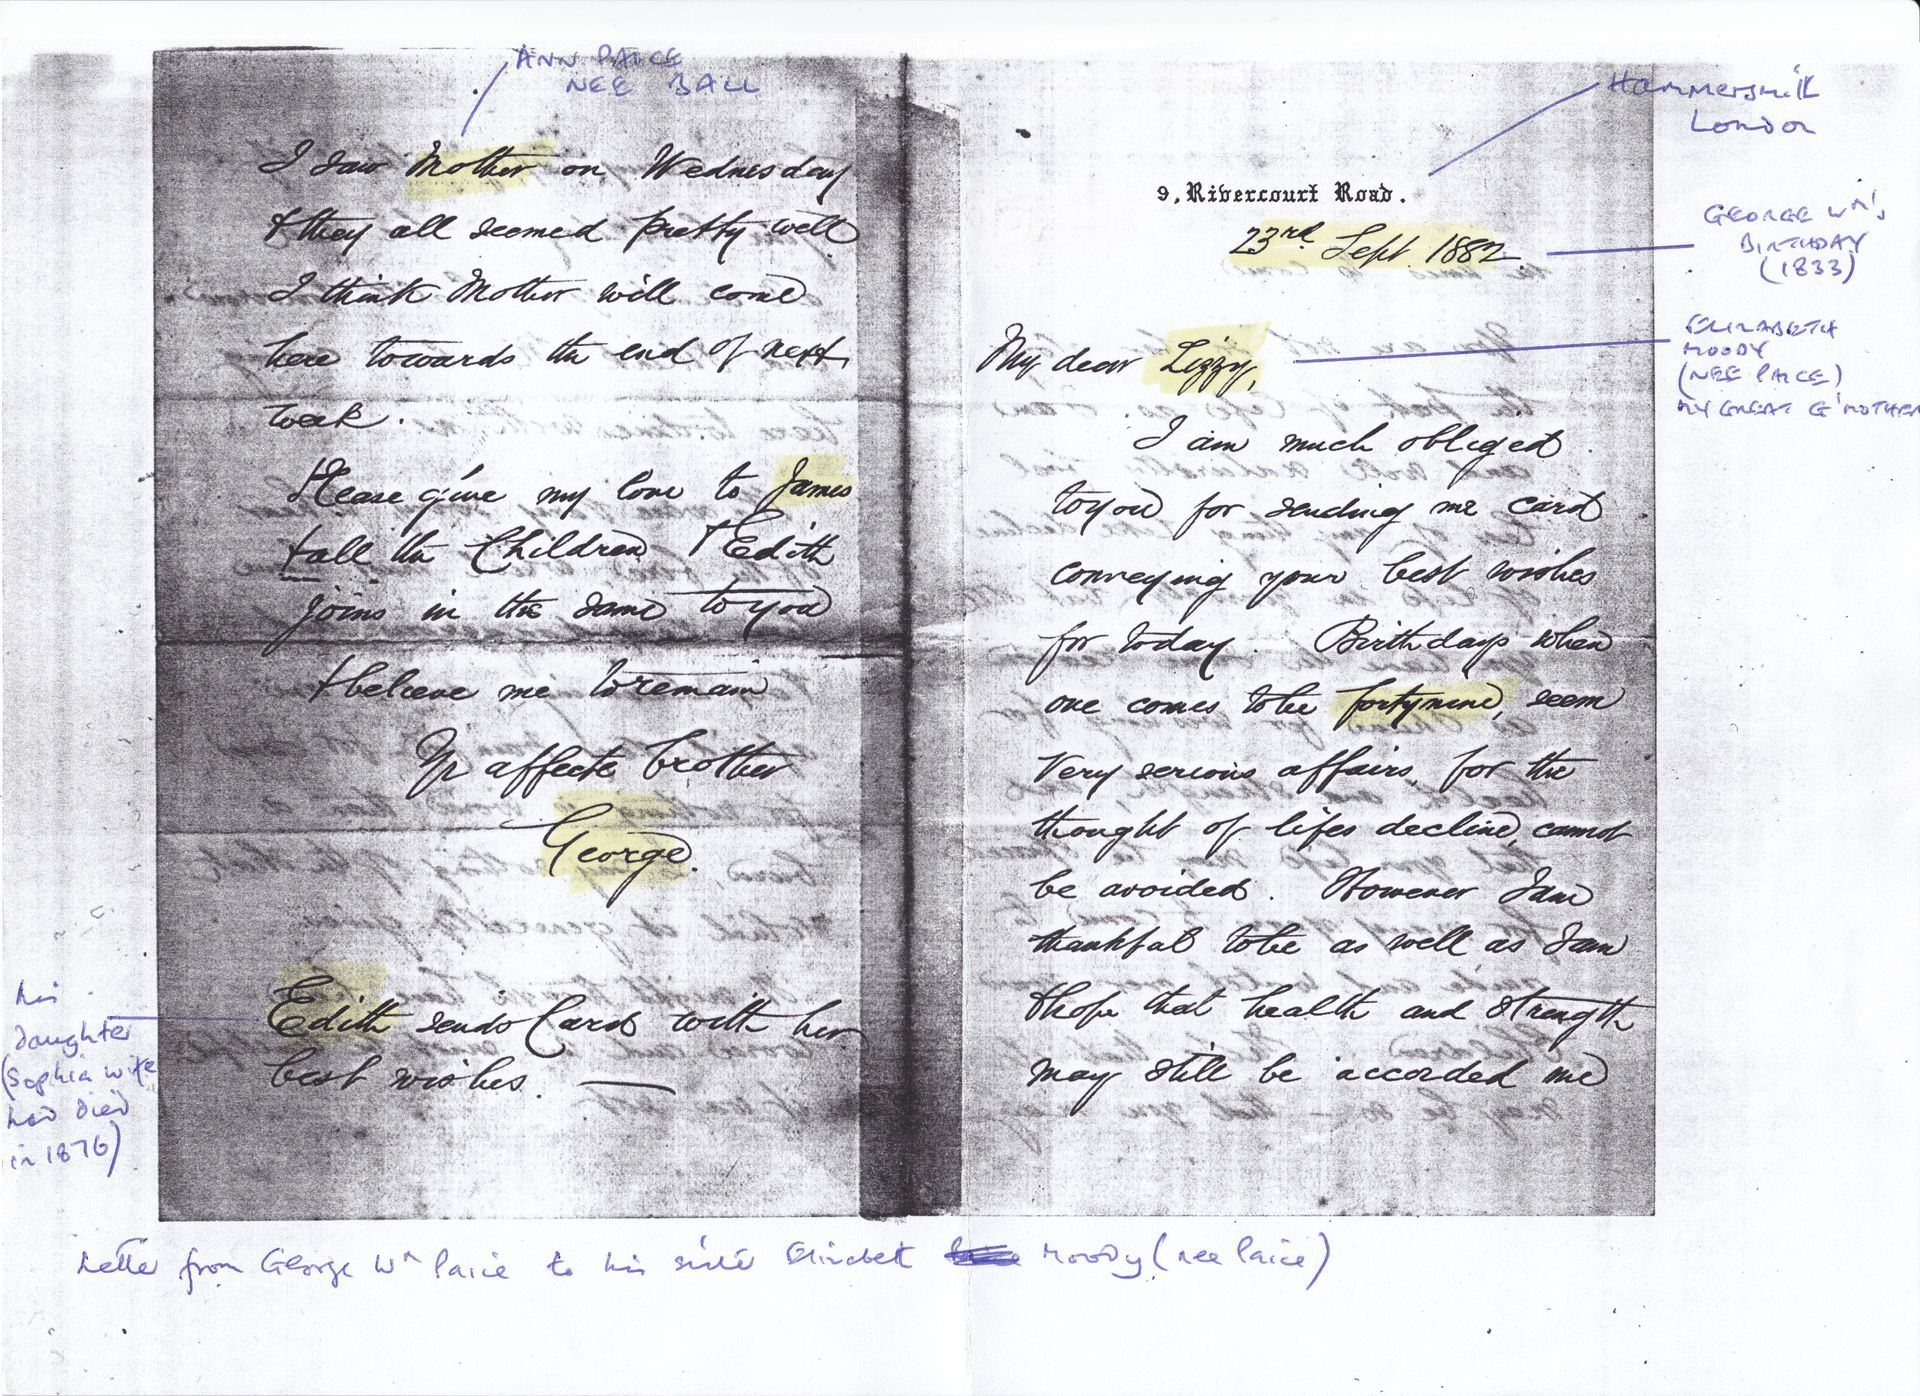 ANN PAICE
NEE BALL
I saw Mother on Wednesday
& they all seemed pretty well
I think Mother will come
here towards the end of next
week.
Please give my love to James
& all the Children & Edith
joins in the same to you
& believe me to remain
Yr affecte brother
George.
Edith sends Card with her
best wishes.
his
daughter
(Sophia wife
had died
in 1876)
Hammersmith
London
9, Rivercourt Road.
23rd Sept. 1882
GEORGE WM'S
BIRTHDAY
(1833)
My dear Lizzy,
ELIZABETH
MOODY
(NEE PAICE)
MY GREAT G'MOTHER
I am much obliged
to you for sending me card
conveying your best wishes
for today. Birthdays when
one comes to be fortynine, seem
very serious affairs, for the
thought of lifes decline, cannot
be avoided. However I am
thankful to be as well as I am
& hope that health and strength
may still be accorded me
Letter from George Wm Paice to his sister Elizabeth Moody (nee Paice)